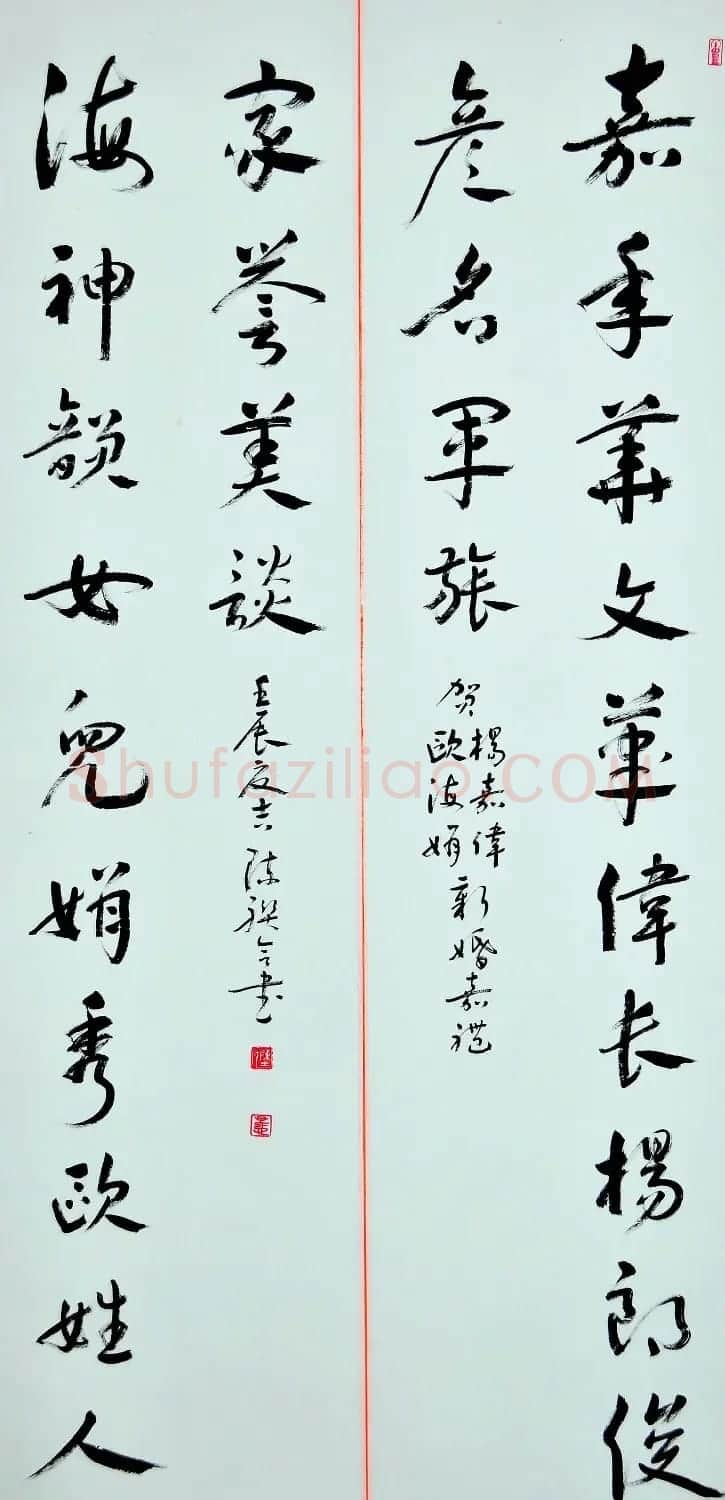 嘉年華文偉长楊郎俊
彦名軍旅
贺楊嘉偉
歐海娟新婚嘉禮
海神韻女兒娟秀歐姓人
家誉美談
壬辰夏吉陈书
Shufaziliao.COM